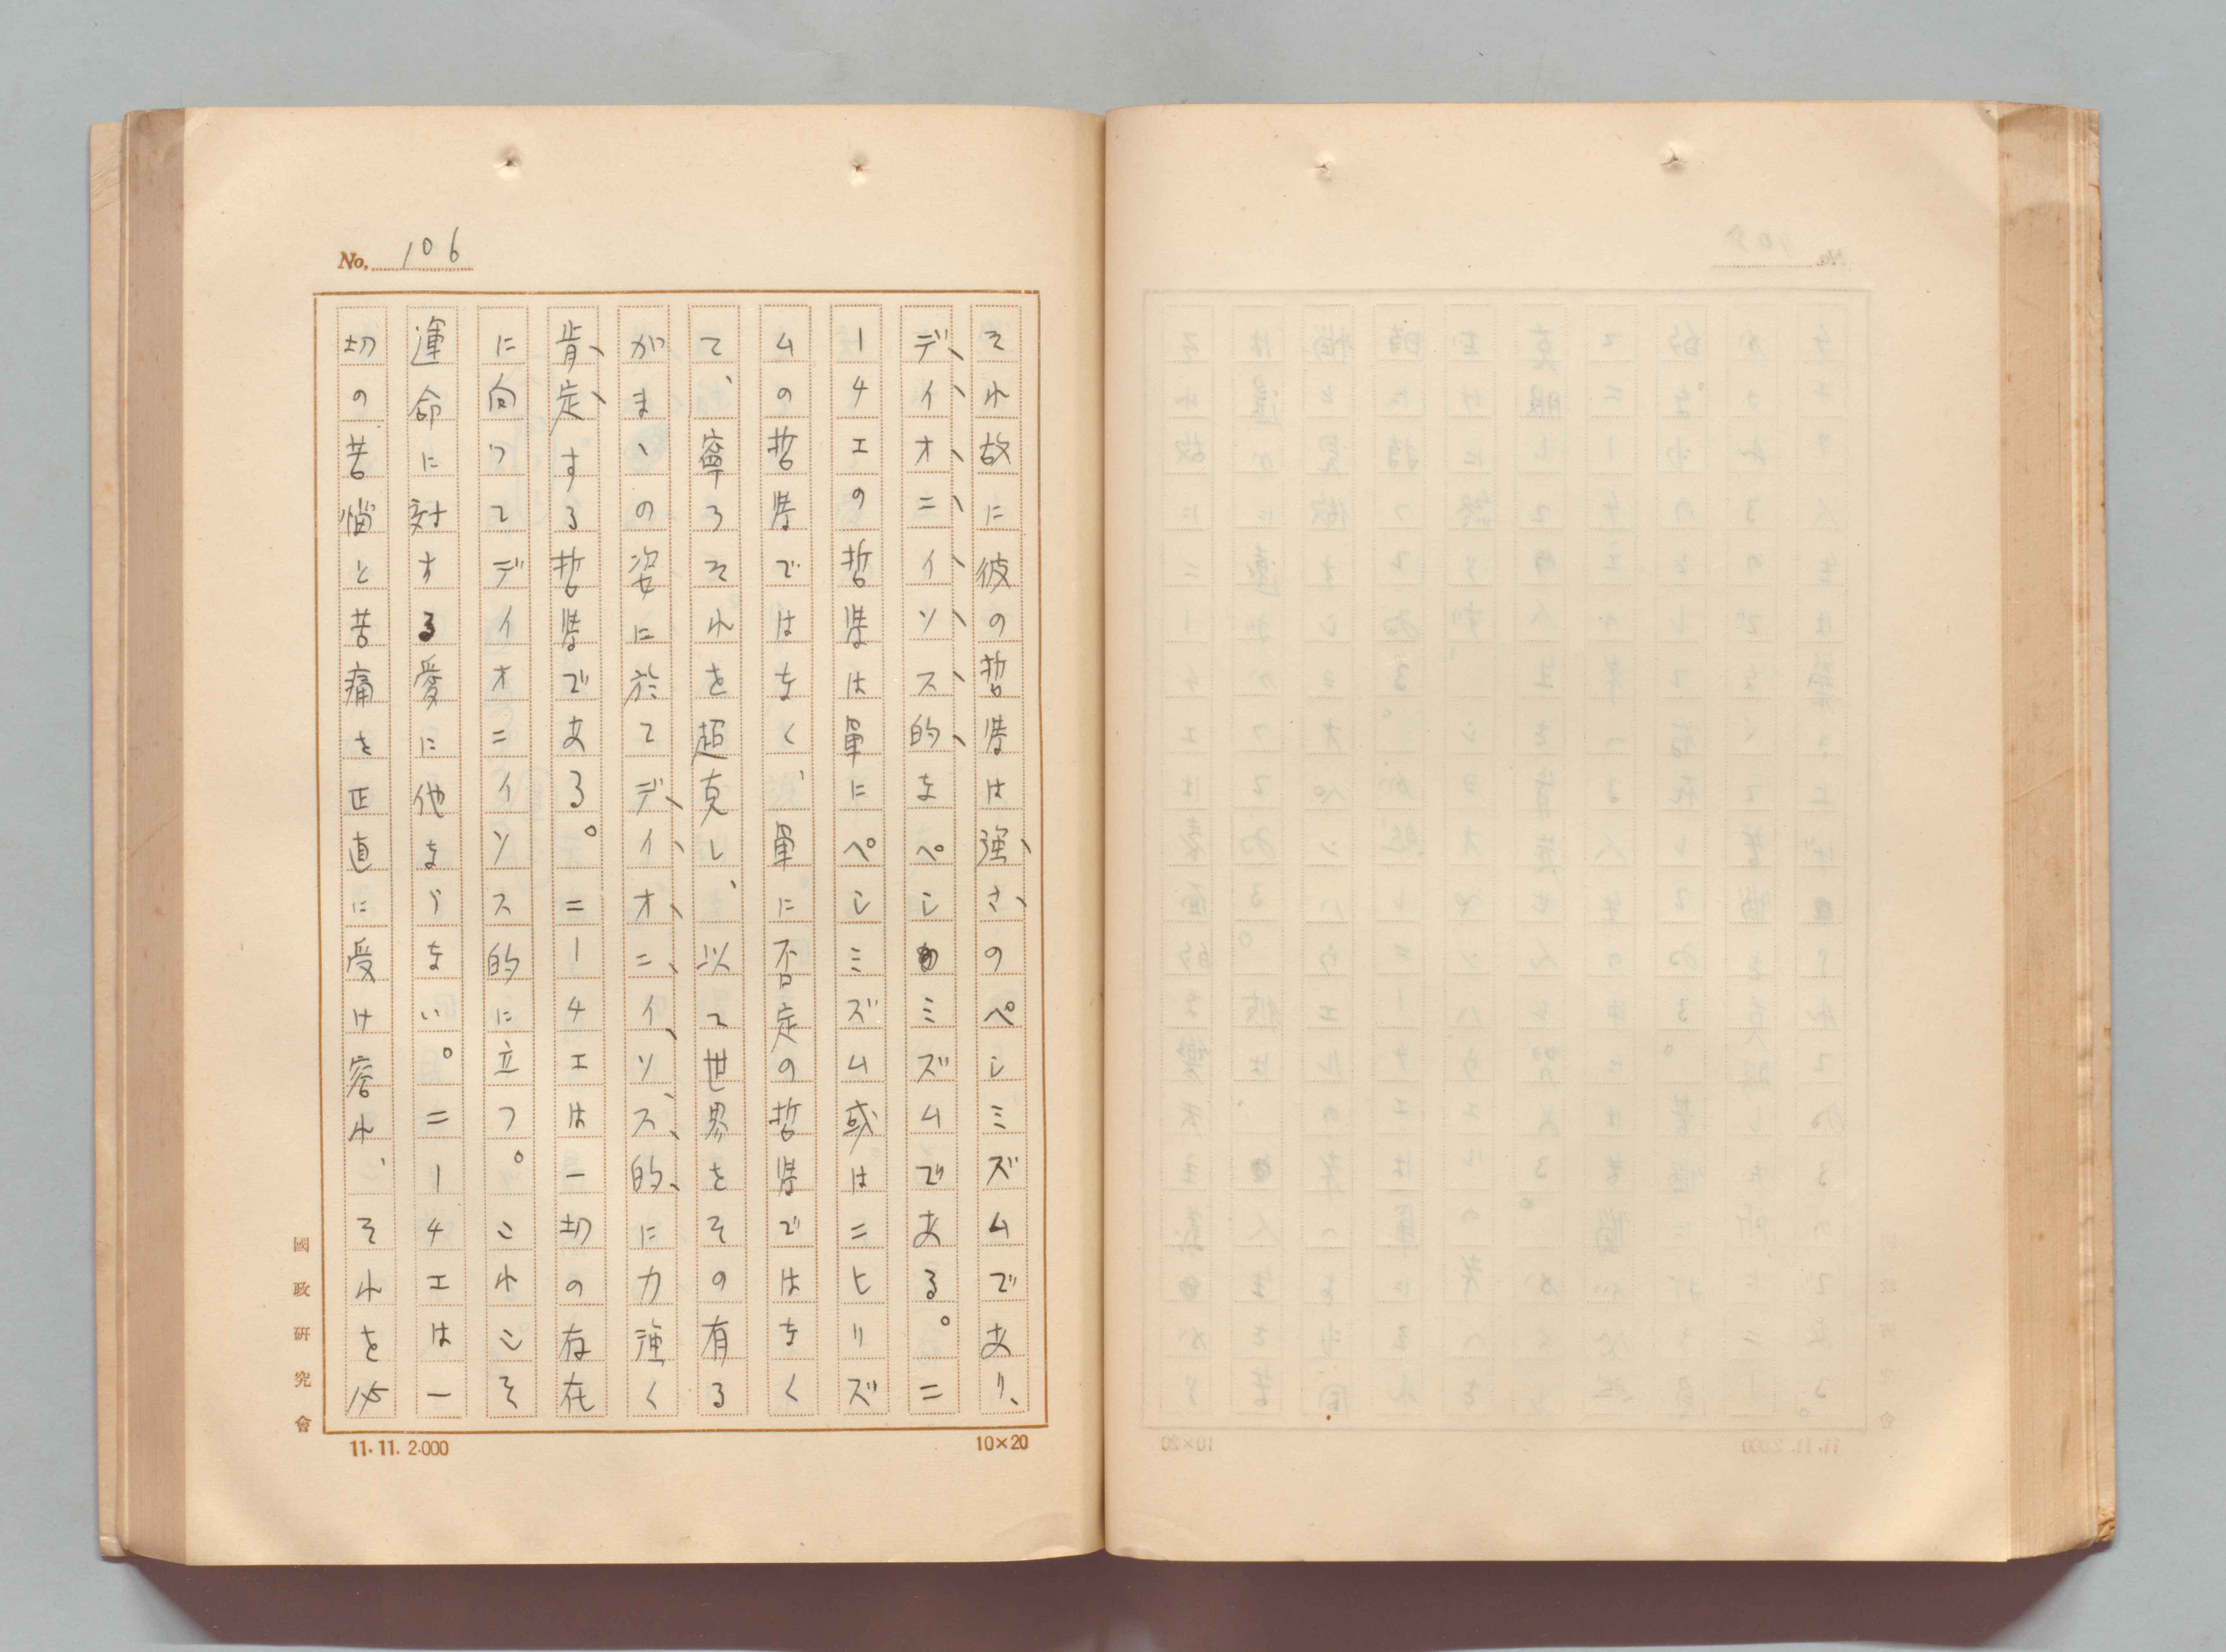 No. 106
それ故に彼の哲学は強さのペシミズムであり、
デイオニイソス的なペシミズムである。ニ
ーチエの哲学は単にペシミズム或はニヒリズ
ムの哲学ではなく、単に否定の哲学ではなく
て、寧ろそれを超克し、以て世界をその有る
がまゝの姿に於てデイオニイソス的に力強く
肯定する哲学である。ニーチエは一切の存在
に向つてデイオニイソス的に立つ。これこそ
運命に対する愛に他ならない。ニーチエは一
切の苦悩と苦痛を正直に受け容れ、それを必
國政研究會
11.11.2.000
10×20